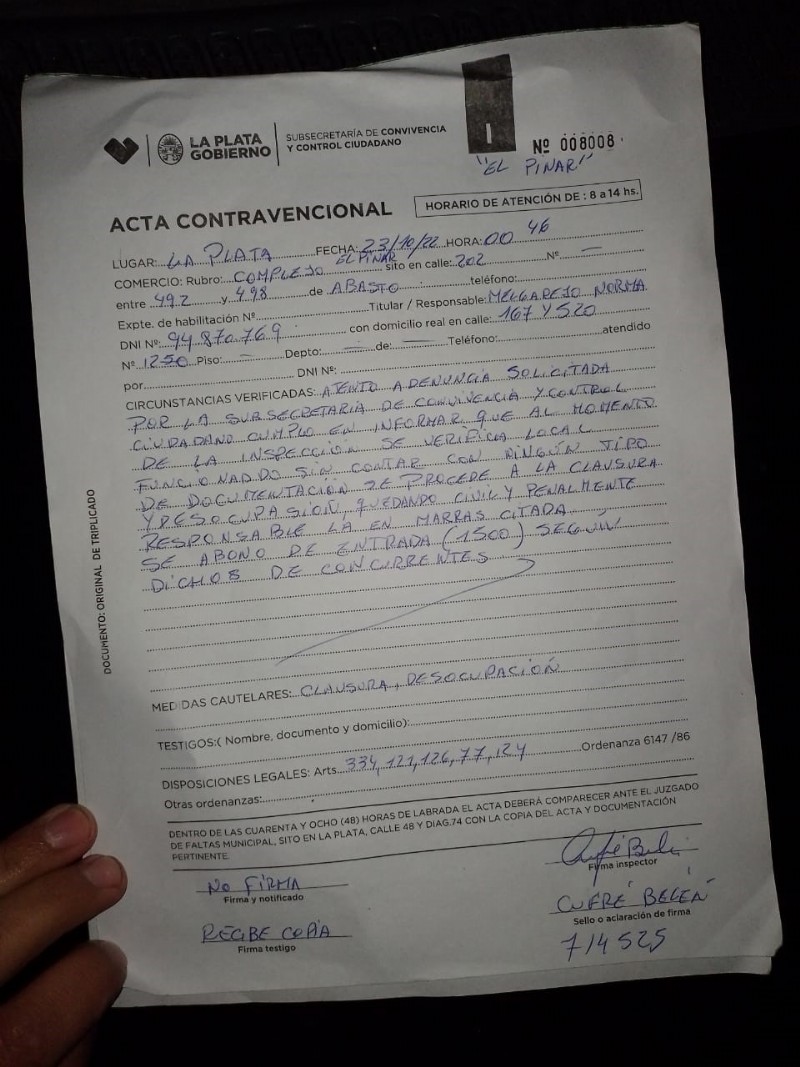 LA PLATA
GOBIERNO
SUBSECRETARÍA DE CONVIVENCIA
Y CONTROL CIUDADANO
I
Nº 008008
"EL PINAR"
ACTA CONTRAVENCIONAL
HORARIO DE ATENCIÓN DE : 8 a 14 hs.
LUGAR: LA PLATA FECHA: 23/10/22 HORA: 00 46
EL PINAR
COMERCIO: Rubro: COMPLEJO sito en calle: 202 Nº —
entre 492 y 498 de ABASTO teléfono:
Expte. de habilitación Nº Titular / Responsable: MELGAREJO NORMA
DNI Nº 94.870.769 con domicilio real en calle: 167 Y 520
Nº 1250 Piso: — Depto: — de: — Teléfono: atendido
por DNI Nº:
CIRCUNSTANCIAS VERIFICADAS: ATENTO A DENUNCIA SOLICITADA
POR LA SUBSECRETARIA DE CONVIVENCIA Y CONTROL
CIUDADANO CUMPLO EN INFORMAR QUE AL MOMENTO
DE LA INSPECCIÓN SE VERIFICA LOCAL
FUNCIONADO SIN CONTAR CON NINGÚN TIPO
DE DOCUMENTACIÓN SE PROCEDE A LA CLAUSURA
Y DESOCUPASION, QUEDANDO CIVIL Y PENALMENTE
RESPONSABLE LA EN MARRAS CITADA
SE ABONO DE ENTRADA (1500) SEGÚN
DICHOS DE CONCURRENTES
DOCUMENTO: ORIGINAL DE TRIPLICADO
MEDIDAS CAUTELARES: CLAUSURA, DESOCUPACIÓN
TESTIGOS:( Nombre, documento y domicilio):
DISPOSICIONES LEGALES: Arts. 334, 121, 126, 77, 124 Ordenanza 6147 /86
Otras ordenanzas:
DENTRO DE LAS CUARENTA Y OCHO (48) HORAS DE LABRADA EL ACTA DEBERÁ COMPARECER ANTE EL JUZGADO
DE FALTAS MUNICIPAL, SITO EN LA PLATA, CALLE 48 Y DIAG.74 CON LA COPIA DEL ACTA Y DOCUMENTACIÓN
PERTINENTE.
NO FIRMA
Firma y notificado
Firma inspector
RECIBE COPIA
Firma testigo
CUFRÉ BELÉN
Sello o aclaración de firma
714525